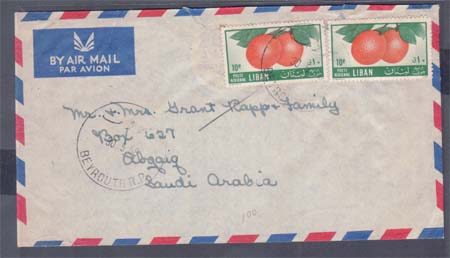 BY AIR MAIL
PAR AVION
10P
POSTE
AERIENNE
LIBAN
لبنان
10P
POSTE
AERIENNE
LIBAN
لبنان
Mr. & Mrs. Grant Rapp & Family
Box 627
Abqaiq
Saudi Arabia
BEYROUTH R.P.
100